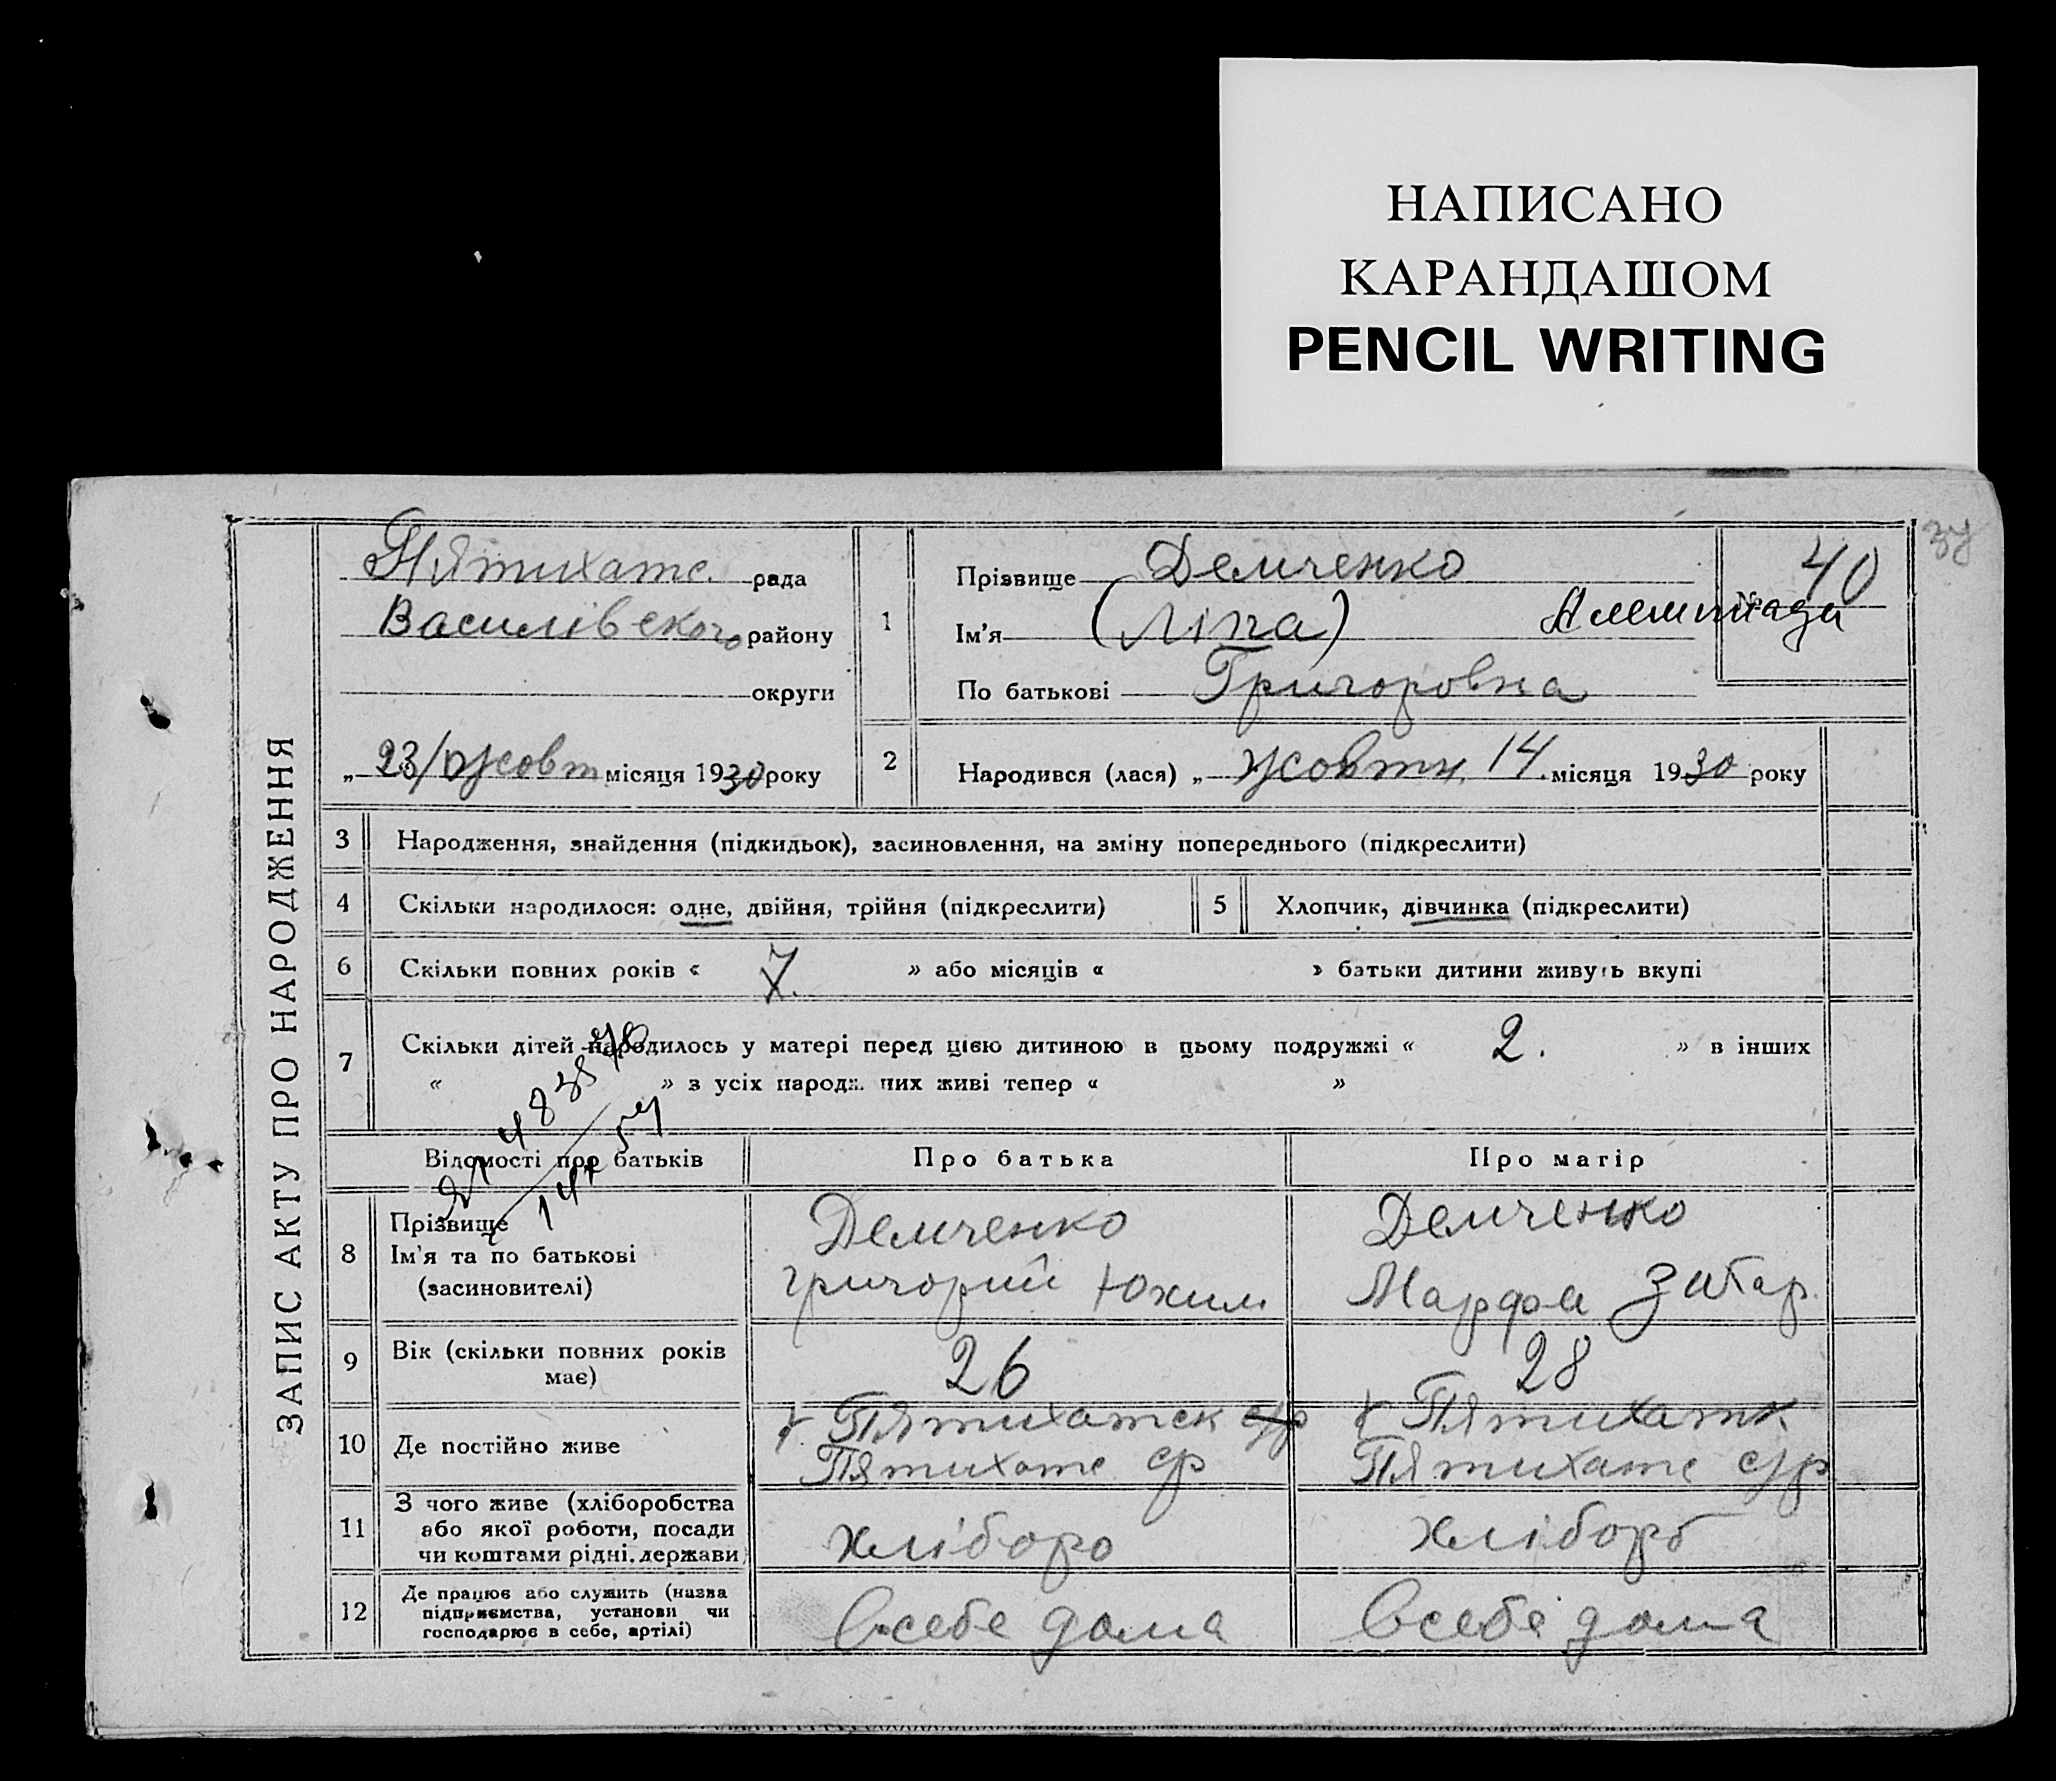 НАПИСАНО
КАРАНДАШОМ
PENCIL WRITING
37
ЗАПИС АКТУ ПРО НАРОДЖЕННЯ
Пятихатс. рада
Василівского району
округи
„ 23/ Жовт місяця 1930 року
1
Прізвище Демченко
Ім'я (Ліпа)
По батькові Григоровна
№ 40
2
Народився (лася) „ Жовтн. 14. місяця 1930 року
3 Народження, знайдення (підкидьок), засиновлення, на зміну попереднього (підкреслити)
4 Скільки народилося: одне, двійня, трійня (підкреслити)
5 Хлопчик, дівчинка (підкреслити)
6 Скільки повних років « 7. » або місяців « » батьки дитини живуть вкупі
7 Скільки дітей народилось у матері перед цією дитиною в цьому подружжі « 2. » в інших
« » з усіх народж. них живі тепер « »
Відомості про батьків
Про батька
Про матір
8 Прізвище
Ім'я та по батькові
(засиновителі)
Демченко
Григорий Юхим
Демченко
Марфа Захар.
9 Вік (скільки повних років
має)
26
28
10 Де постійно живе
Пятихатск с/р
Пятихатс ср
Пятихатк
Пятихатс с/р
11 З чого живе (хліборобства
або якої роботи, посади
чи коштами рідні, держави)
хліборо
хлібороб
12 Де працює або служить (назва
підприємства, установи чи
господарює в себе, артілі)
всебе дома
всебе дома